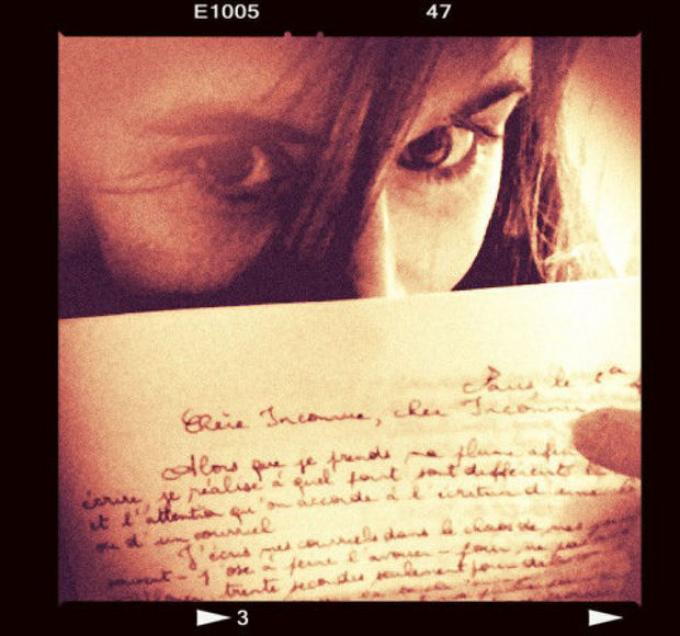 E1005 47
Paris le
Chère Inconnue, cher Inconnu
Alors que je prends ma plume afin
écrire, je réalise à quel point sont différent
et l'attention qu'on accorde à l'écriture d'une
ou d'un courriel
J'écris mes courriels dans le chaos de mes
souvent - j'ose à peine l'avouer - pour ne
trente secondes seulement pour
3